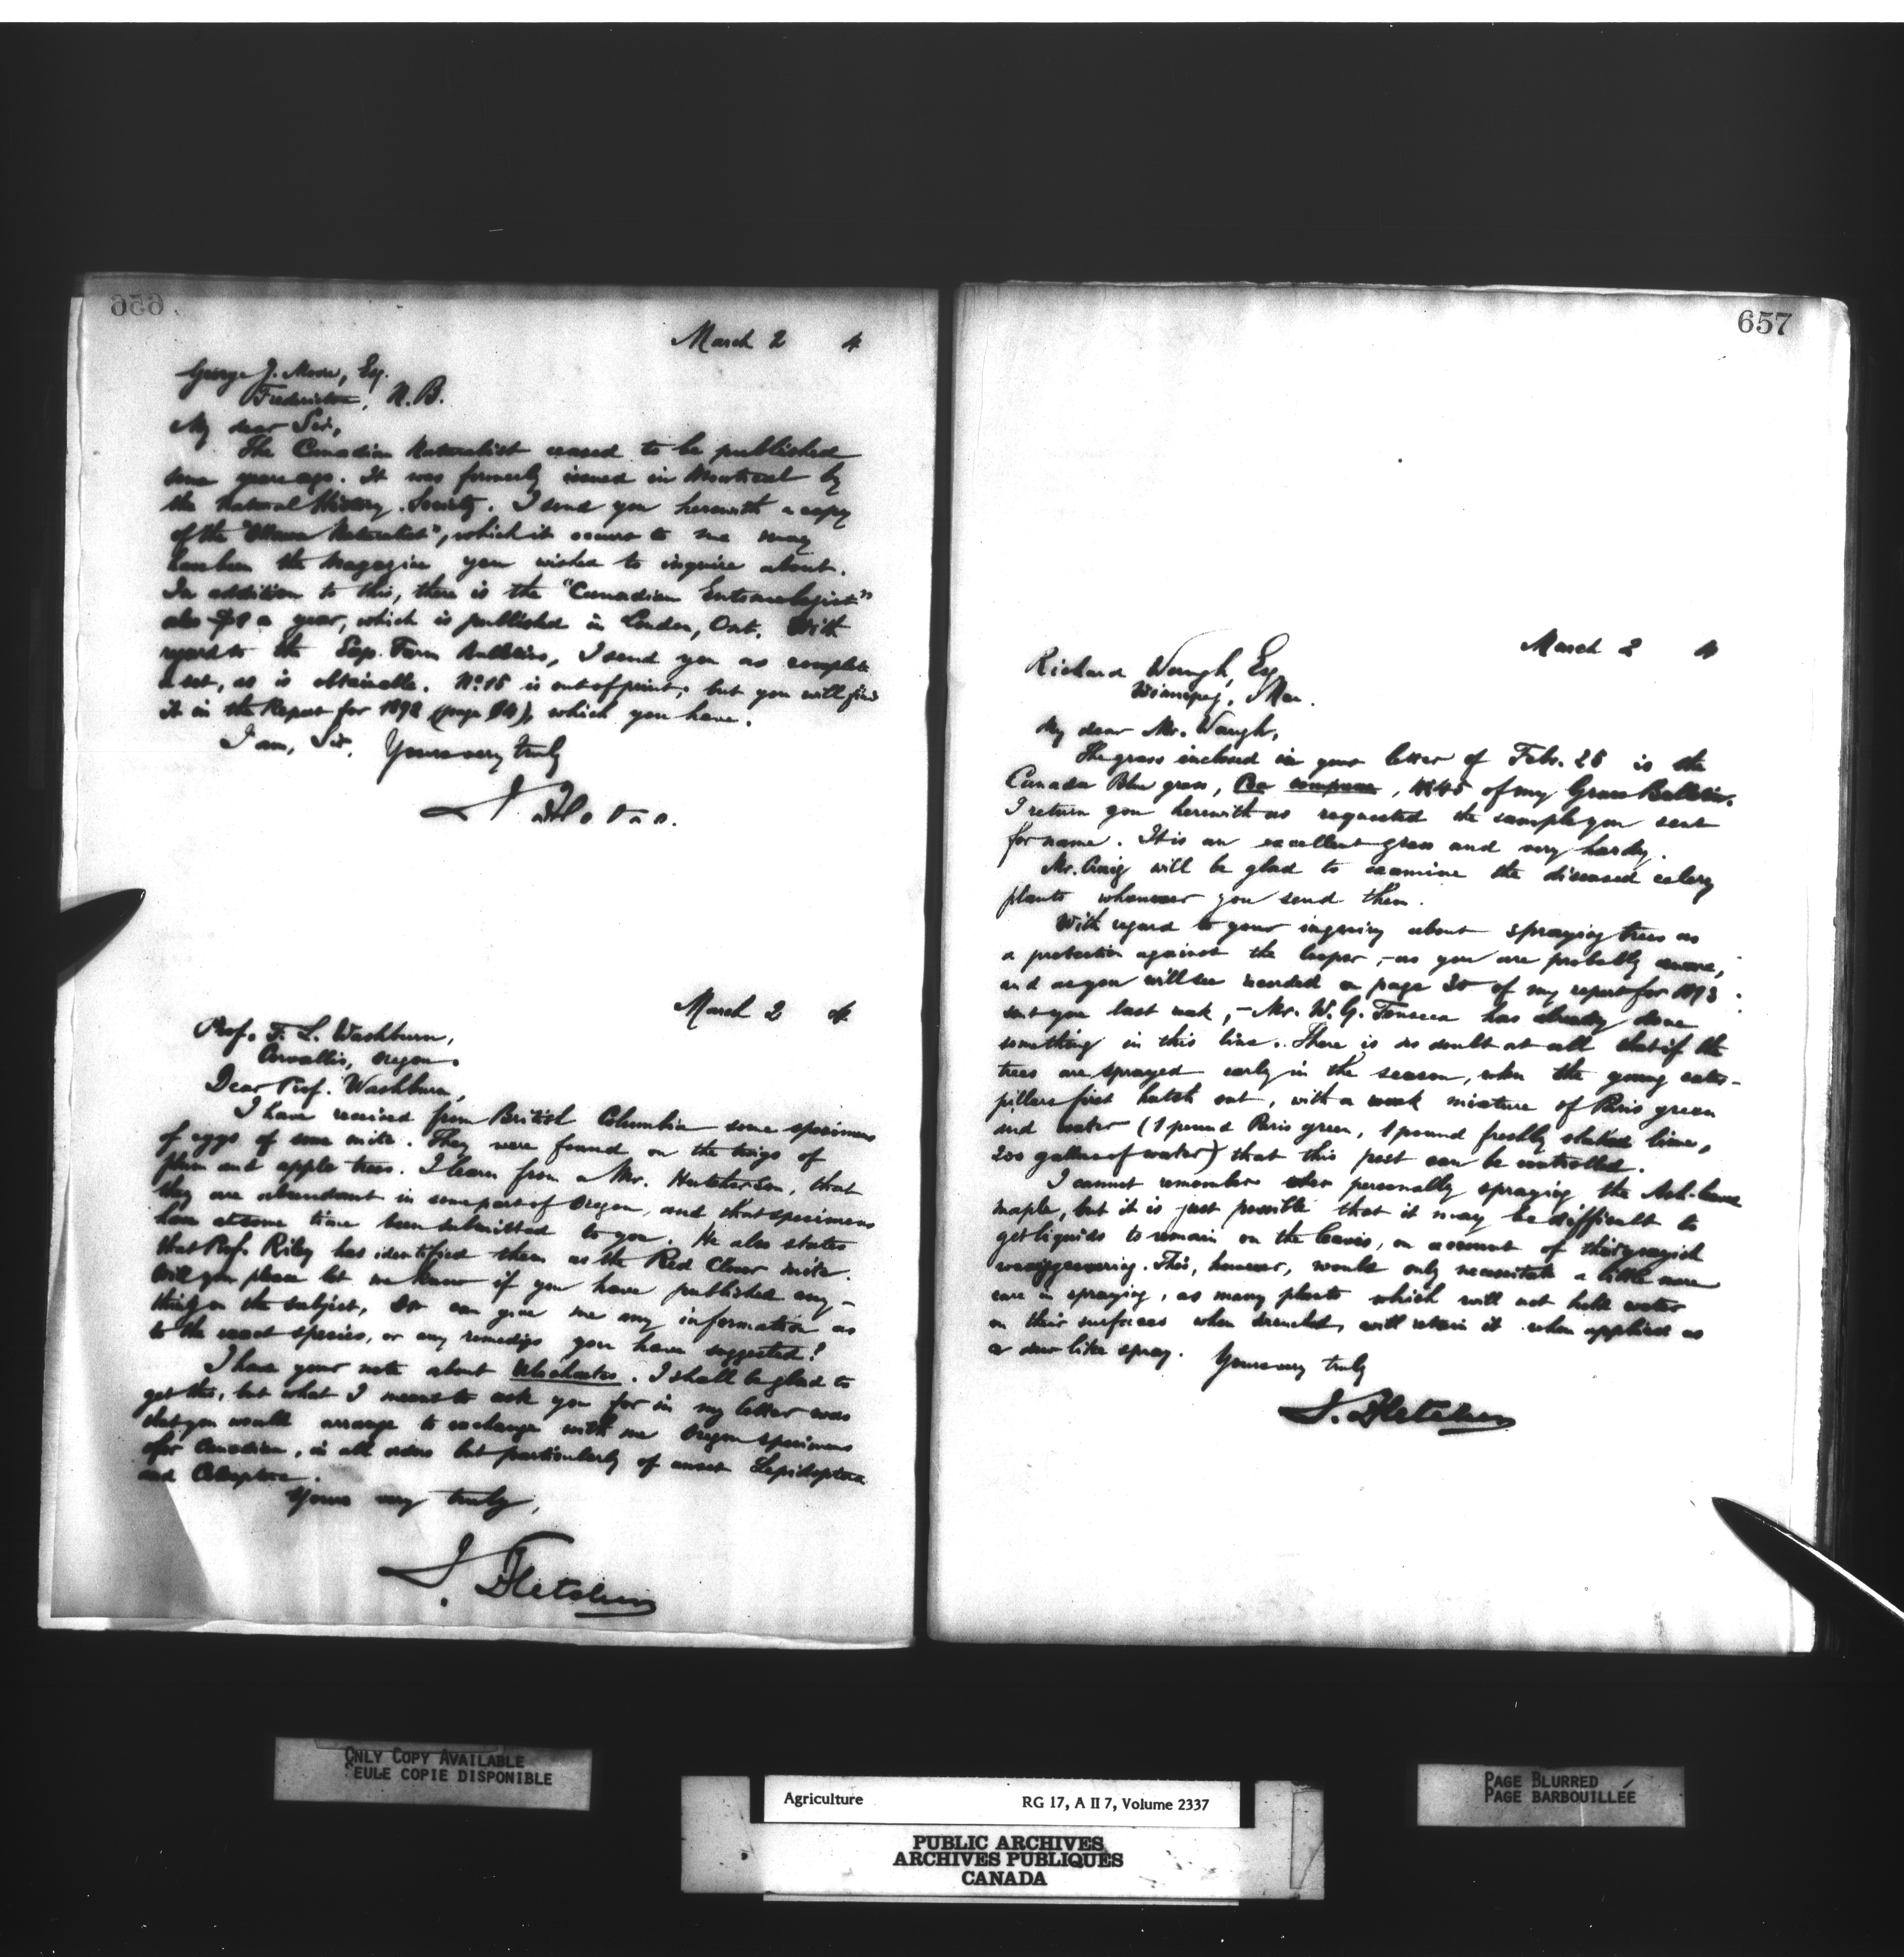 656
March 2 4
George J. Moore, Esq.
Fredericton, N.B.
My dear Sir,
The Canadian Naturalist ceased to be published
some years ago. It was formerly issued in Montreal by
the Natural History Society. I send you herewith a copy
of the "Ottawa Naturalist", which it occurs to me may
have been the Magazine you wished to inquire about.
In addition to this, there is the "Canadian Entomologist"
also a year, which is published in London, Ont. With
regard to the Exp. Farm Bulletins, I send you as complete
a set, as is obtainable. No. 15 is out of print, but you will find
it in the Report for 1892 (page), which you have.
I am, Sir, Yours very truly
March 2 4
Prof. F. L. Washburn,
Corvallis, Oregon.
Dear Prof. Washburn,
I have received from British Columbia some specimens
of eggs of some mite. They were found on the twigs of
plum and apple trees. I learn from a Mr. Hutcherson, that
they are abundant in some part of Oregon, and that specimens
have at some time been submitted to you. He also states
that Prof. Riley has identified them as the Red Clover mite.
Will you please let me know if you have published any-
thing on the subject, or can give me any information as
to the exact species, or any remedies you have suggested?
I have your note about . I shall be glad to
get this, but what I meant to ask you for in my letter was
that you would arrange to exchange with me Oregon specimens
for Canadian, in all orders but particularly of Lepidoptera
and Coleoptera.
Yours very truly,
J. Fletcher
657
March 2 4
Richard Waugh, Esq.
Winnipeg, Man.
My dear Mr. Waugh,
The grass inclosed in your letter of Feb. 25 is the
Canada Blue grass, Poa compressa, of my Grass Bulletin.
I return you herewith as requested the sample you sent
for name. It is an excellent grass and very hardy.
Mr. Craig will be glad to examine the diseased celery
plants whenever you send them.
With regard to your inquiry about spraying trees as
a protection against the looper,—as you are probably aware,
and as you will see recorded on page 20 of my report for 1893
sent you last week,—Mr. W. G. Fonseca has already done
something in this line. There is no doubt at all that if the
trees are sprayed early in the season, when the young cater-
pillars first hatch out, with a weak mixture of Paris green
and water (1 pound Paris green, 1 pound freshly slaked lime,
200 gallons of water) that this pest can be controlled.
I cannot remember ever personally spraying the Ash-leaved
maple, but it is just possible that it may be difficult to
get liquids to remain on the leaves, on account of their
covering. This, however, would only necessitate a little more
care in spraying, as many plants which will not hold water
on their surfaces when drenched, will retain it when applied as
a dew like spray. Yours very truly
J. Fletcher
ONLY COPY AVAILABLE
SEULE COPIE DISPONIBLE
Agriculture RG 17, A II 7, Volume 2337
PUBLIC ARCHIVES
ARCHIVES PUBLIQUES
CANADA
PAGE BLURRED
PAGE BARBOUILLÉE